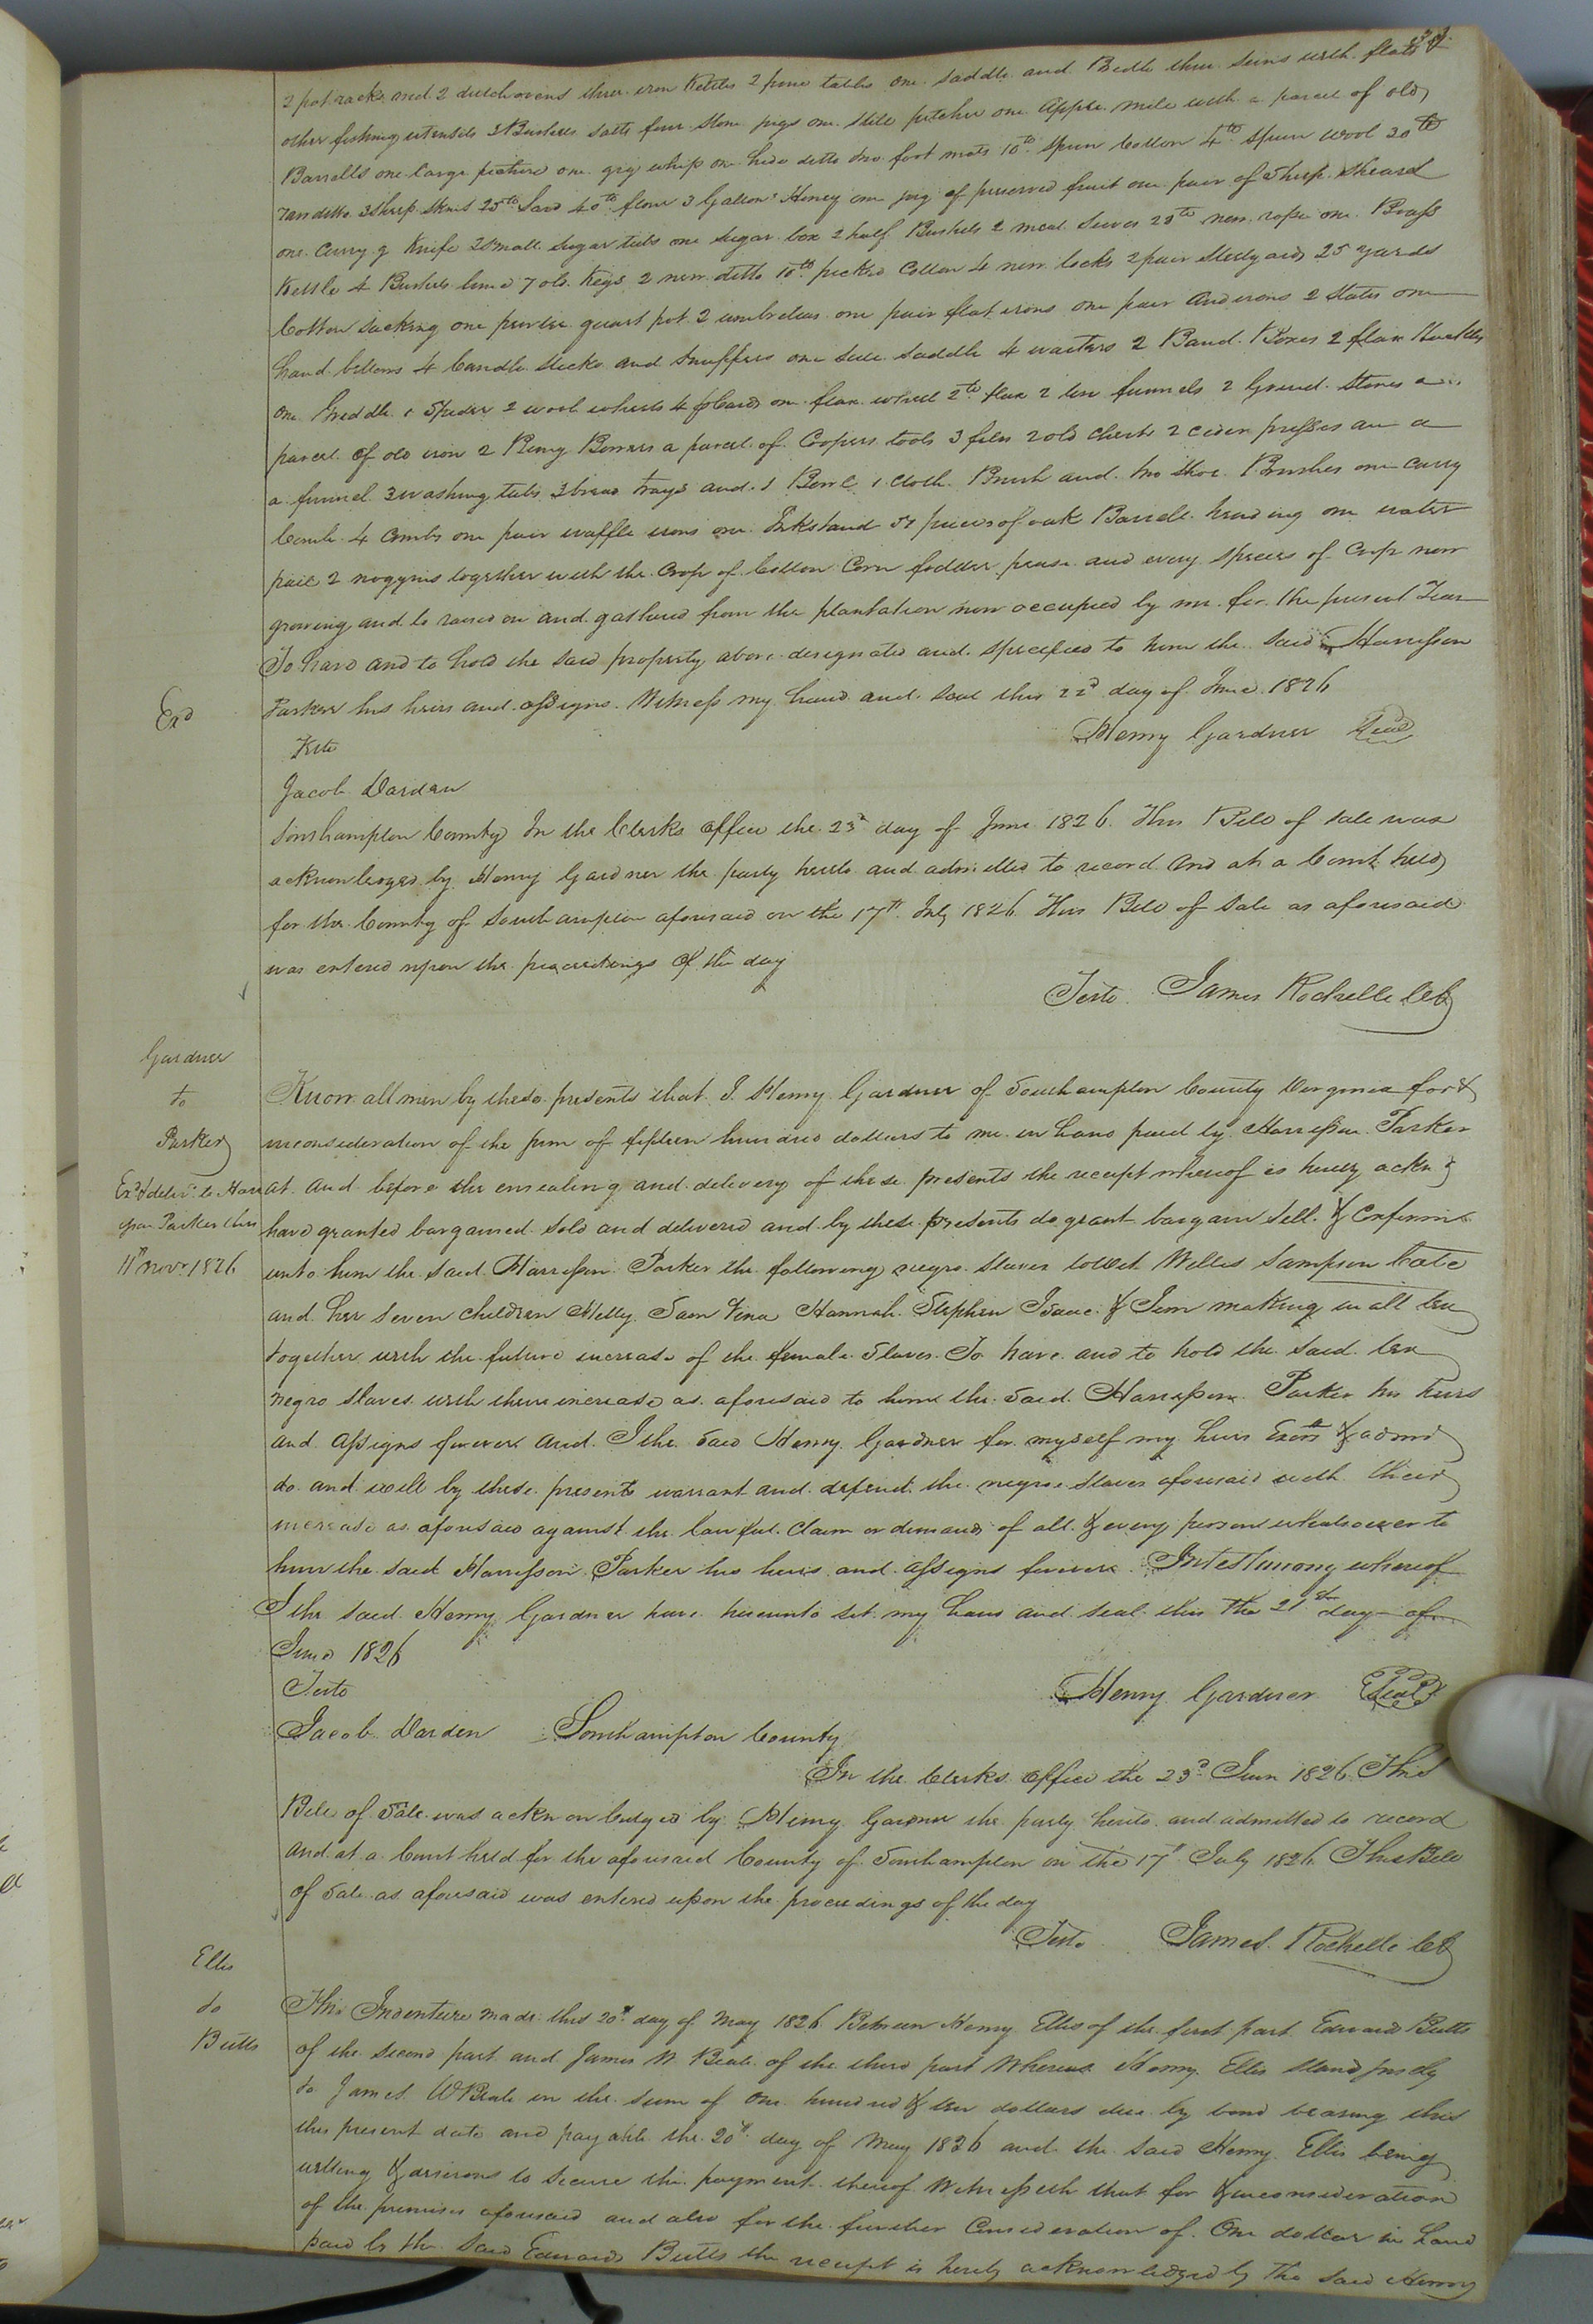 2 pot racks and 2 dutch ovens three iron Kettles 2 pine tables one saddle and Bridle three seins with floats &
other fishing utensils 3 Bushels salts four stone jugs one pitcher one Apple mill with a parcel of old
Barrells one large picture one gig whip one hide ditto two foot mats 10 lb spun Cotton 4 lb spun wool 30 lb
ditto 3 sheep skins 25 lb Lard 40 lb flour 3 Gallons Honey one jug of preserved fruit one pair of Sheep Sheard
one Curry g Knife 2 small sugar tubs one sugar box 2 half Bushels 2 meal sieves 28 lb new rope one Brass
Kettle 4 Bushels lime 7 old Kegs 2 new ditto 10 lb picked Cotton 4 new locks 2 pair Steelyards 25 yards
Cotton sacking one pewter quart pot 2 umbrellas one pair flat irons one pair Andirons 2 Slates one
hand bellows 4 Candle sticks and snuffers one side saddle 4 waiters 2 Band Boxes 2 flax Hackles
one Griddle 1 Spider 2 wool wheels 4 pr Cards one flax wheel 2 lb flax 2 tin funnels 2 Grind stones a
parcel of old iron 2 Borers a parcel of Coopers tools 3 files 2 old chests 2 cider presses
a funnel 3 washing tubs 3 bread trays and 1 Bowl 1 cloth Brush and two shoe Brushes one Curry
Comb 4 Combs one pair waffle irons one Inkstand pieces of oak Barrell heading one water
pail 2 noggins together with the Crop of Cotton Corn fodder pease and every species of Crop now
growing and to raised on and gathered from the plantation now occupied by me for the present Year
To have and to hold the said property above designated and specified to him the said Harrisson
Parker his heirs and assigns Witness my hand and seal this 22d day of June 1826
Exd
Henry Gardner Seal
Teste
Jacob Darden
Southampton County In the Clerks office the 23d day of June 1826 This Bill of Sale was
acknowledged by Henry Gardner the party hereto and admitted to record And at a Court held
for the County of Southampton aforesaid on the 17th July 1826 This Bill of Sale as aforesaid
was entered upon the proceedings of the day
Teste James Rochelle Clk
Gardner
to
Parker
Exd & delivd to Harri
Parker this
11th Novr 1826
Know all men by these presents that I Henry Gardner of Southampton County Virginia for &
inconsideration of the sum of fifteen hundred dollars to me in hand paid by Harrisson Parker
at and before the ensealing and delivery of these presents the receipt whereof is hereby ackn g
have granted bargained sold and delivered and by these presents do grant bargain sell & Confirm
unto him the said Harrisson Parker the following negro slaves towit Willis Sampson Cate
and her seven children Milly Sam Vina Hannah Stephen Isaac & Jim making in all ten
together with the future increase of the female Slaves To have and to hold the said ten
negro slaves with their increase as aforesaid to him the said Harrisson Parker his heirs
and Assigns forever And I the said Henry Gardner for myself my heirs Exors & admrs
do and will by these presents warrant and defend the negroe slaves aforesaid with their
increase as aforesaid against the lawful Claim or demand of all & every person whatsoever to
him the said Harrisson Parker his heirs and assigns forever Intestimony whereof
I the said Henry Gardner have hereunto set my hand and seal this the 21st day of
June 1826
Teste
Henry Gardner Seal
Jacob Darden Southampton County
In the Clerks office the 23d June 1826 This
Bill of Sale was acknowledged by Henry Gardner the party hereto and admitted to record
and at a Court held for the aforesaid County of Southampton on the 17th July 1826 This Bill
of Sale as aforesaid was entered upon the proceedings of the day
Teste James Rochelle Clk
Ellis
to
Butts
This Indenture made this 20th day of May 1826 Between Henry Ellis of the first part Edward Butts
of the second part and James W Beale of the third part Whereas Henry Ellis stand justly
to James W Beale in the sum of one hundred & ten dollars due by bond bearing this
this present date and payable the 20th day of May 1826 and the said Henry Ellis being
willing & desirous to secure the payment thereof Witnesseth that for & inconsideration
of the premises aforesaid and also for the further Consideration of One dollar in hand
paid by the said Edward Butts the receipt is hereby acknowledged by the said Henry